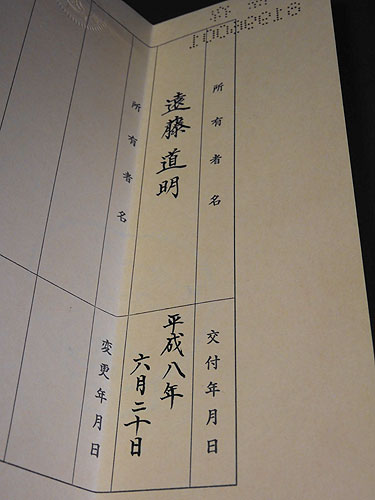 所有者名
遠藤道明
所有者名
交付年月日
平成八年
六月二十日
変更年月日